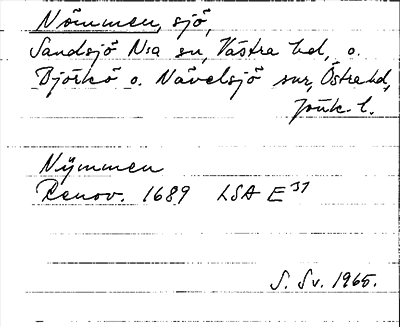 Nömmen, sjö,
Sandsjö N:a sn, Västra hd, o.
Björkö o. Nävelsjö snr, Östra hd,
Jönk. l.
Nÿmmen
Renov. 1689 LSA E31
S. Sv. 1965.